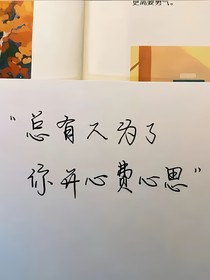 更需要勇气。
"总有人为了
你开心费心思"